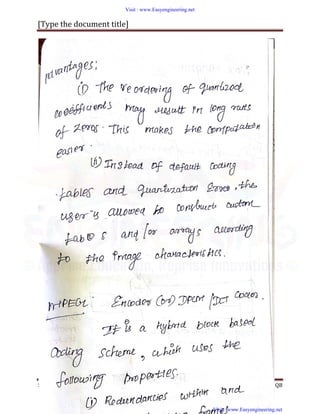 Visit : www.Easyengineering.net
[Type the document title]
Advantages:
(i) The reordering of quantized
coefficients may result in long runs
of zeros. This makes the computation
easier.
(ii) Instead of default coding
tables and quantization , the
user is allowed to construct custom
and/or arrays according
to the image characteristics.
MPEG: Encoder (or) DPCM/DCT Coder.
It is a hybrid block based
Coding scheme, which uses the
following properties.
QB
(i) Redundancies within and
frames
www.Easyengineering.net